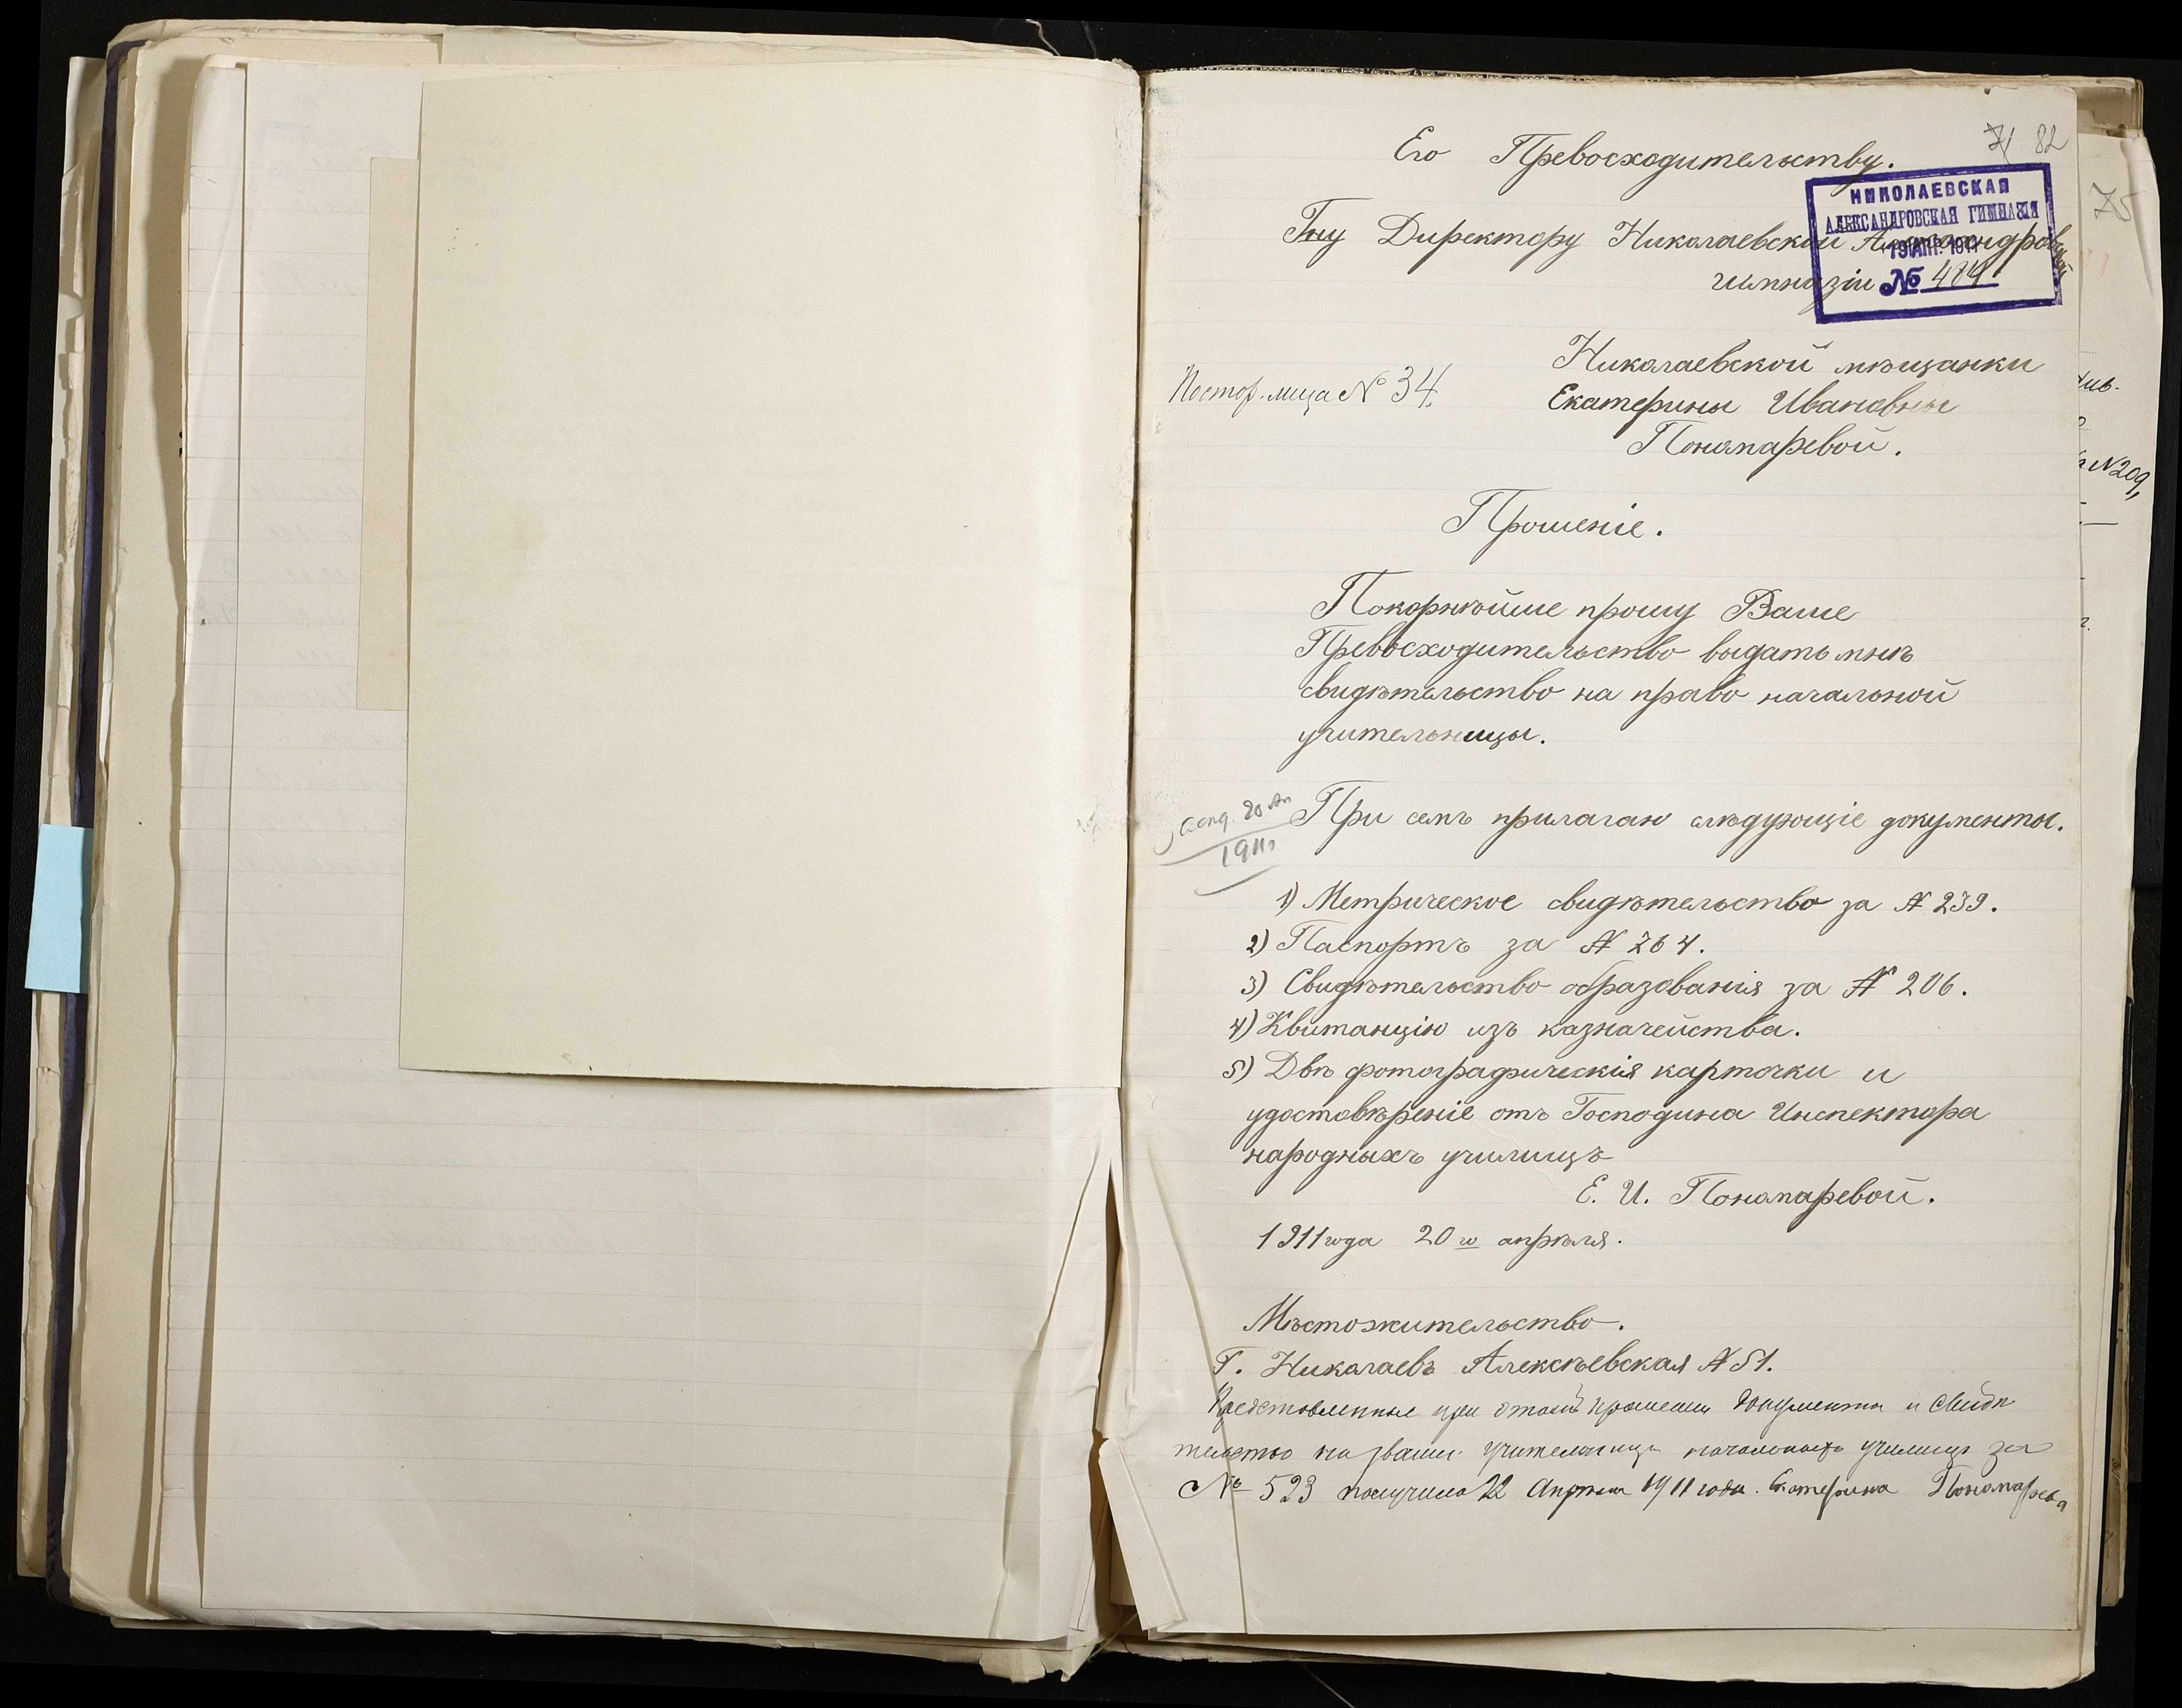 71 82
Его Превосходительству.
НИКОЛАЕВСКАЯ
АЛЕКСАНДРОВСКАЯ ГИМНАЗІЯ
19 АПР. 1911
№ 484
Гну Директору Николаевской Александровской
гимназіи
75
Николаевской мѣщанки
Постор. лица № 34.
Екатерины Ивановны
Понамаревой.
№209,
Прошеніе.
Покорнѣйше прошу Ваше
Превосходительство выдать мнѣ
свидѣтельство на право начальной
учительницы.
20 Ап
1911
При семъ прилагаю слѣдующіе документы.
1) Метрическое свидѣтельство за № 239.
2) Паспортъ за № 264.
3) Свидѣтельство образованія за № 206.
4) Квитанцію изъ казначейства.
5) Двѣ фотографическія карточки и
удостовѣреніе отъ Господина Инспектора
народныхъ училищъ
Е. И. Понамаревой.
1911 года 20го апрѣля.
Мѣстожительство.
Г. Николаевъ Алексѣевская № 51.
Представленные при этомъ прошеніи документы и свидѣ
тельство на званіе учительницы начальныхъ училищъ за
№ 523 получила 22 Апрѣля 1911 года. Екатерина Понамарева